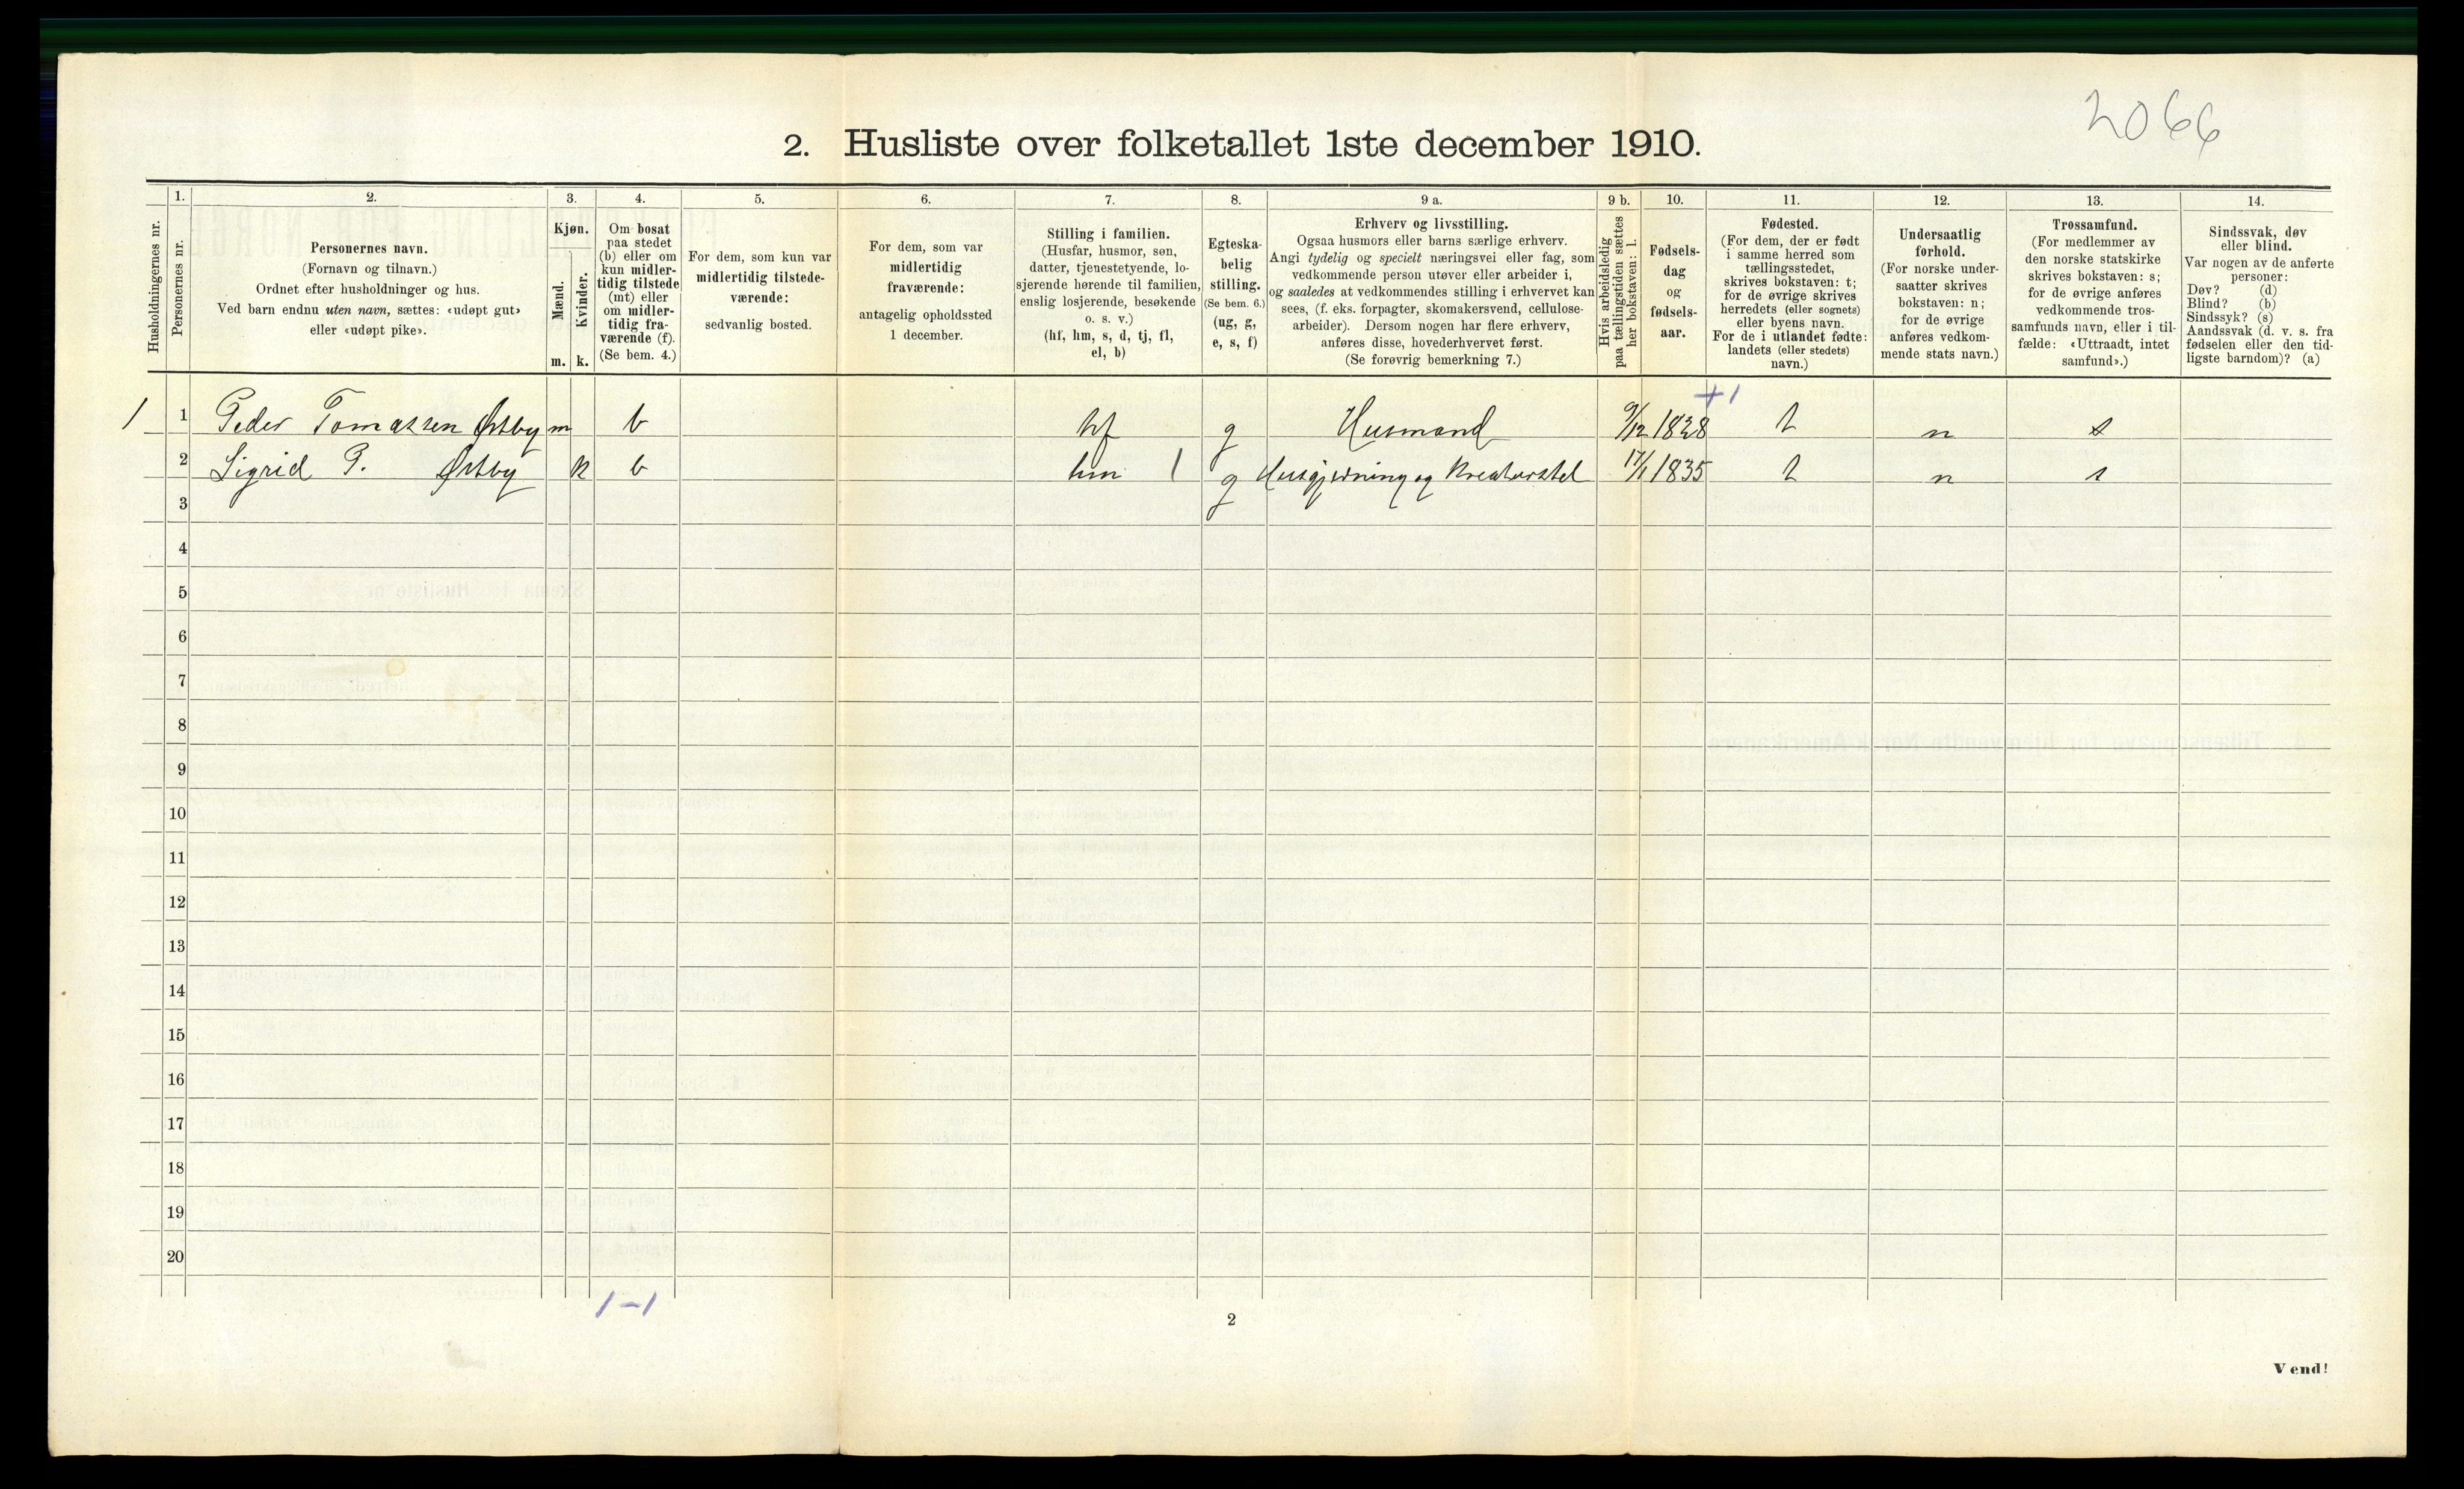 2066
2. Husliste over folketallet 1ste december 1910.
Husholdningernes nr.
1.
Personernes nr.
2.
Personernes navn.
(Fornavn og tilnavn.)
Ordnet efter husholdninger og hus.
Ved barn endnu uten navn, sættes: «udøpt gut»
eller «udøpt pike».
3.
Kjøn.
Mænd.
Kvinder.
m. k.
4.
Om bosat
paa stedet
(b) eller om
kun midler-
tidig tilstede
(mt) eller
om midler-
tidig fra-
værende (f).
(Se bem. 4.)
5.
For dem, som kun var
midlertidig tilstede-
værende:
sedvanlig bosted.
6.
For dem, som var
midlertidig
fraværende:
antagelig opholdssted
1 december.
7.
Stilling i familien.
(Husfar, husmor, søn,
datter, tjenestetyende, lo-
sjerende hørende til familien,
enslig losjerende, besøkende
o. s. v.)
(hf, hm, s, d, tj, fl,
el, b)
8.
Egteska-
belig
stilling.
(Se bem. 6.)
(ug, g,
e, s, f)
9 a.
Erhverv og livsstilling.
Ogsaa husmors eller barns særlige erhverv.
Angi tydelig og specielt næringsvei eller fag, som
vedkommende person utøver eller arbeider i,
og saaledes at vedkommendes stilling i erhvervet kan
sees, (f. eks. forpagter, skomakersvend, cellulose-
arbeider). Dersom nogen har flere erhverv,
anføres disse, hovederhvervet først.
(Se forøvrig bemerkning 7.)
9 b.
Hvis arbeidsledig
paa tællingstiden sættes
her bokstaven: l.
10.
Fødsels-
dag
og
fødsels-
aar.
11.
Fødested.
(For dem, der er født
i samme herred som
tællingsstedet,
skrives bokstaven: t;
for de øvrige skrives
herredets (eller sognets)
eller byens navn.
For de i utlandet fødte:
landets (eller stedets)
navn.)
12.
Undersaatlig
forhold.
(For norske under-
saatter skrives
bokstaven: n;
for de øvrige
anføres vedkom-
mende stats navn.)
13.
Trossamfund.
(For medlemmer av
den norske statskirke
skrives bokstaven: s;
for de øvrige anføres
vedkommende tros-
samfunds navn, eller i til-
fælde: «Uttraadt, intet
samfund».)
14.
Sindssvak, døv
eller blind.
Var nogen av de anførte
personer:
Døv? (d)
Blind? (b)
Sindssyk? (s)
Aandssvak (d. v. s. fra
fødselen eller den tid-
ligste barndom)? (a)
+1
1 1 Peder Tomassen Østby m b hf g Husmand 9/12 1828 t n s
2 Sigrid P. Østby k b hm 1 g Husgjerning og Kreaturstel 17/1 1835 t n s
3
4
5
6
7
8
9
10
11
12
13
14
15
16
17
18
19
20
1-1
2
Vend!